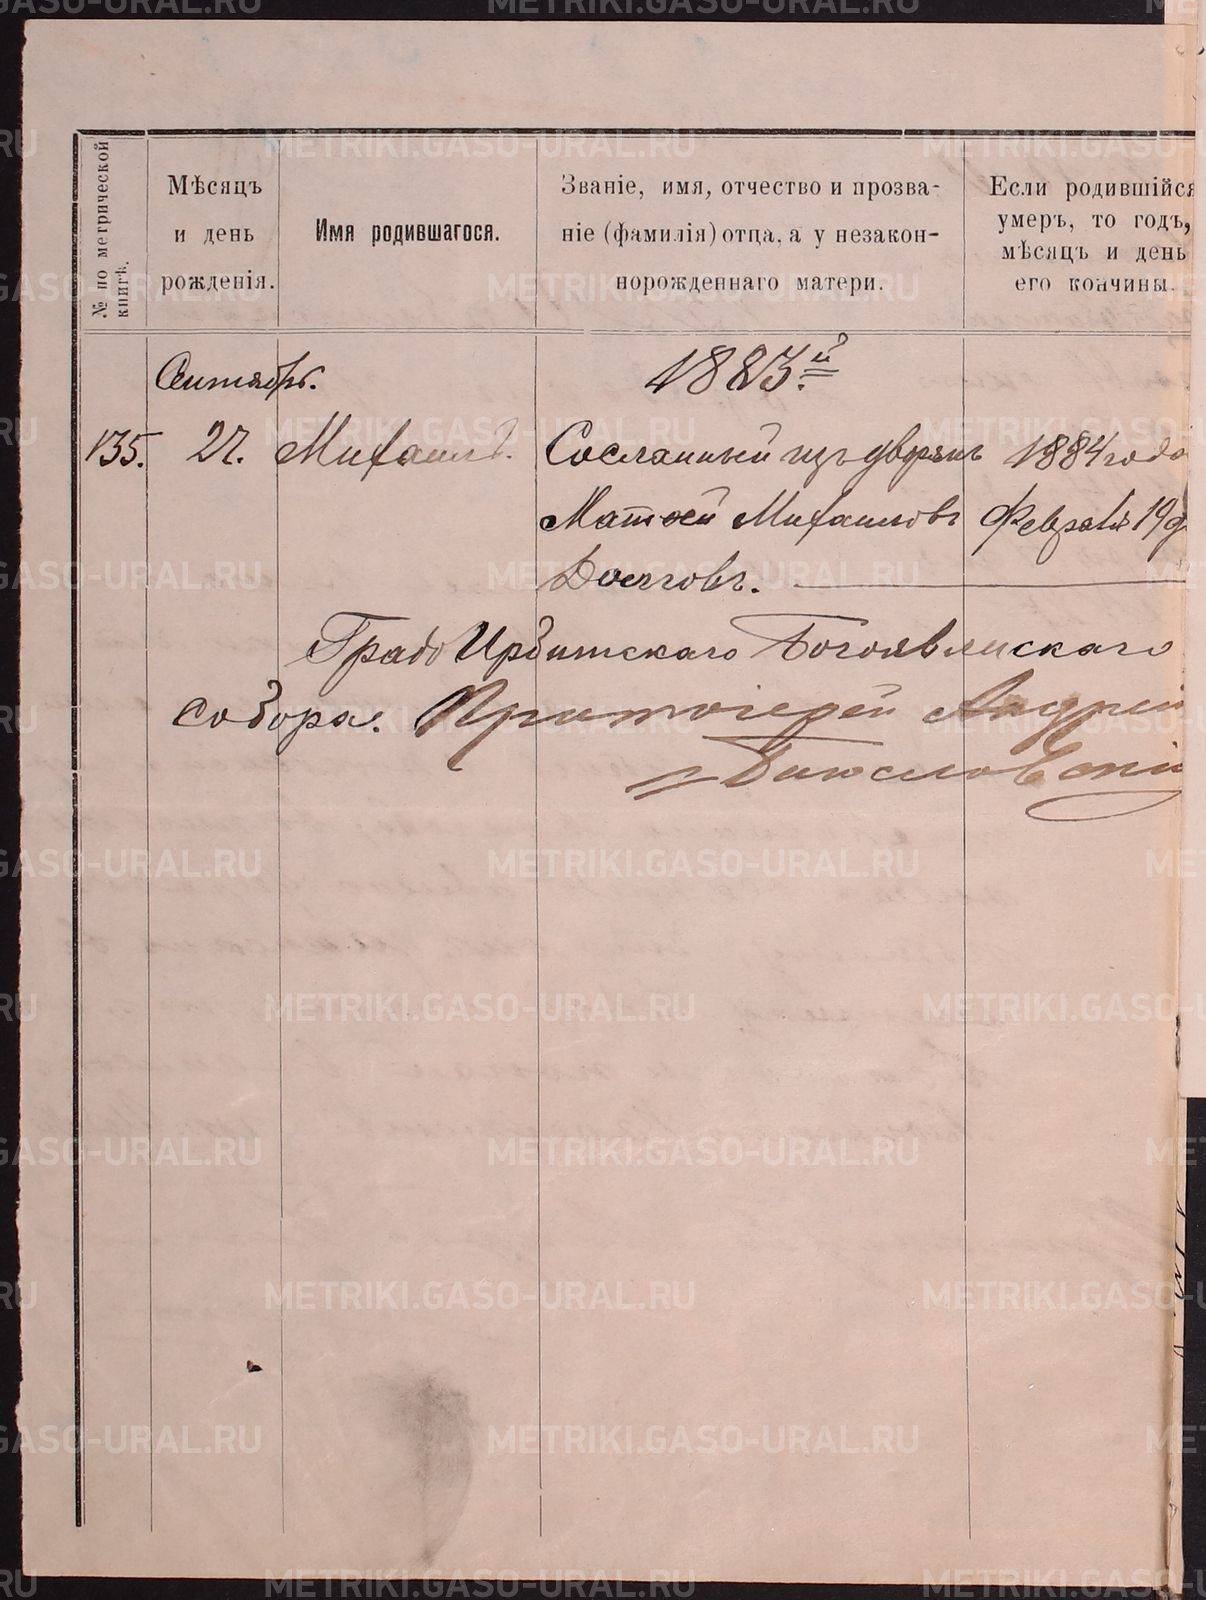 № по метрической книгѣ.
Мѣсяцъ и день рожденія.
Имя родившагося.
Званіе, имя, отчество и прозва-
ніе (фамилія) отца, а у незакон-
норожденнаго матери.
Если родившійся
умеръ, то годъ,
мѣсяцъ и день
его кончины.
Сентябрь.
1883й
135. 27. Михаилъ. Сосланный изъ дворянъ 1884 года
Матѳей Михаиловъ Февраля 19 д
Долговъ.
Градо Ирбитскаго Богоявленскаго
собора. Протоіерей Андрей
METRIKI.GASO-URAL.RU